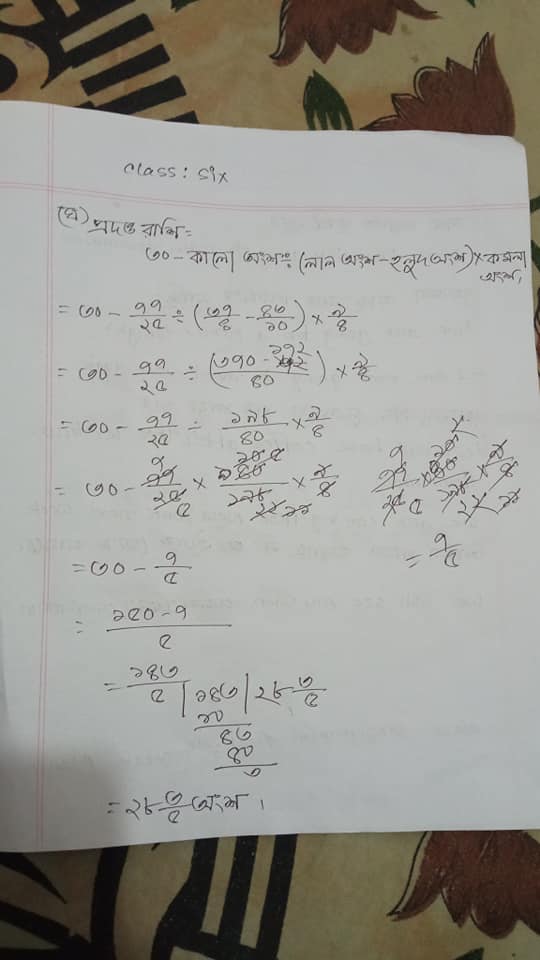 class: six
(ঘ) প্রদত্ত রাশি=
৩০ - কালো অংশ ÷ (লাল অংশ - হলুদ অংশ) × কমলা অংশ।
= ৩০ - ৭৭/২৫ ÷ (৩৭/৪ - ৪৩/১০) × ৯/৪
= ৩০ - ৭৭/২৫ ÷ (৩৭০ - ১৭২/৪০) × ৯/৪
= ৩০ - ৭৭/২৫ ÷ ১৯৮/৪০ × ৯/৪
= ৩০ - ৭৭/২৫ × ৪০/১৯৮ × ৯/৪
= ৭/৫
= ৩০ - ৭/৫
= ১৫০ - ৭/৫
= ১৪৩/৫ | ১৪৩ | ২৮ ৩/৫
১০
৪৩
৪০
৩
= ২৮ ৩/৫ অংশ।